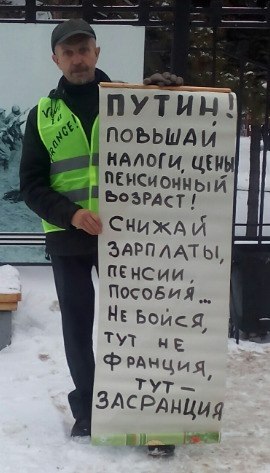 ПУТИН!
ПОВЫШАЙ
НАЛОГИ, ЦЕНЫ
ПЕНСИОННЫЙ
ВОЗРАСТ!
СНИЖАЙ
ЗАРПЛАТЫ,
ПЕНСИИ,
ПОСОБИЯ...
НЕ БОЙСЯ,
ТУТ НЕ
ФРАНЦИЯ,
ТУТ –
ЗАСРАНЦИЯ